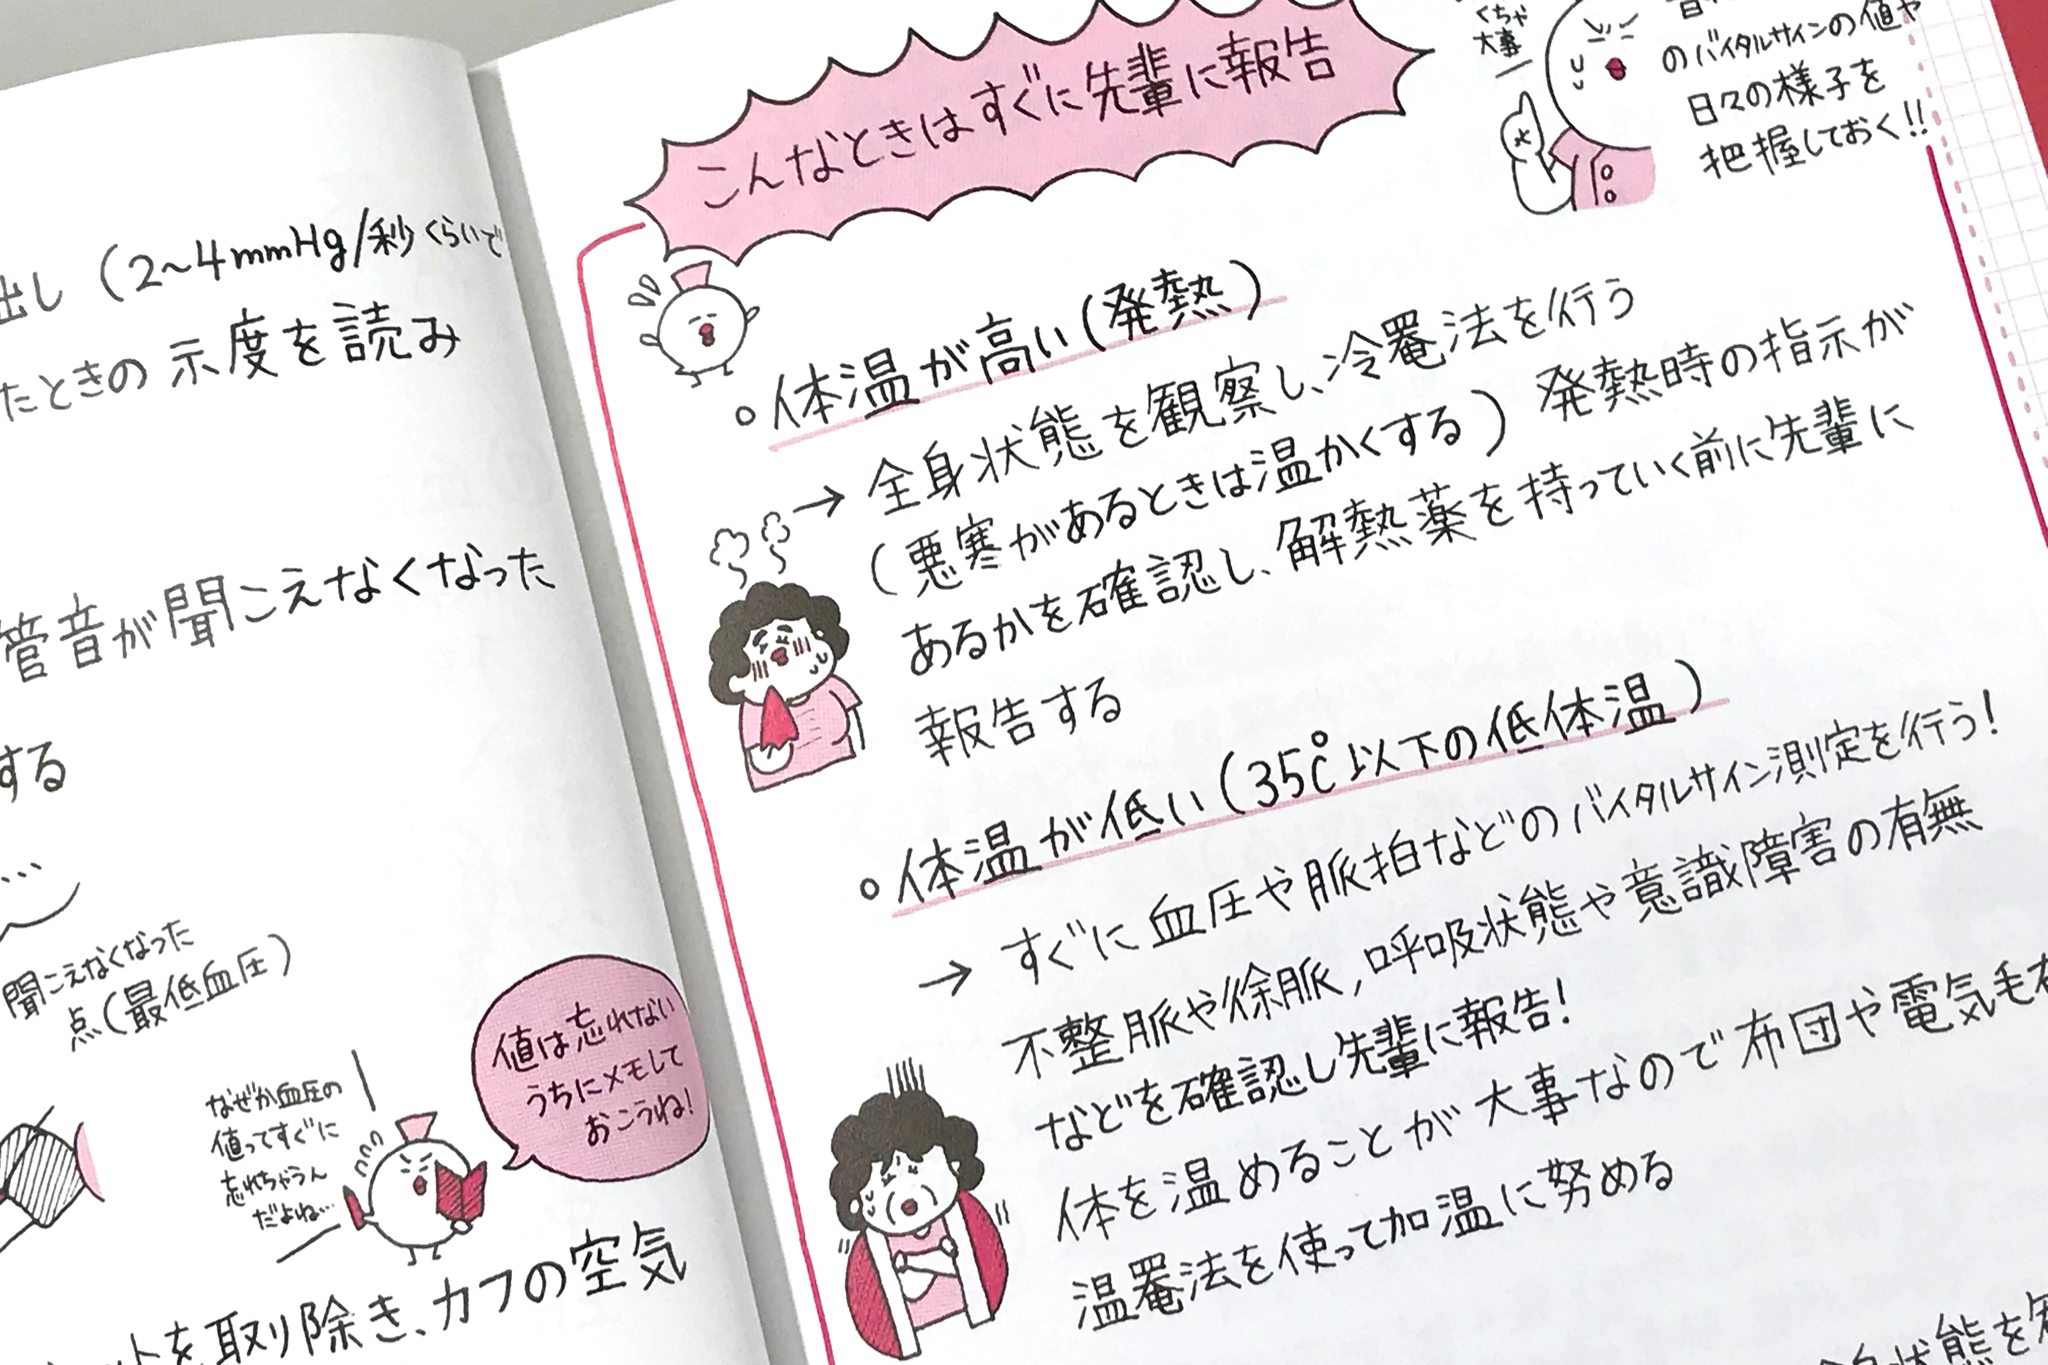 出し（2〜4mmHg/秒くらいで
たときの示度を読み
管音が聞こえなくなった
する
…
聞こえなくなった
点（最低血圧）
なぜか血圧の
値ってすぐに
忘れちゃうん
だよね…
値は忘れない
うちにメモして
おこうね！
を取り除き、カフの空気
こんなときはすぐに先輩に報告
くちゃ
大事
のバイタルサインの値や
日々の様子を
把握しておく!!
○体温が高い（発熱）
→全身状態を観察し、冷罨法を行う
（悪寒があるときは温かくする）発熱時の指示が
あるかを確認し、解熱薬を持っていく前に先輩に
報告する
○体温が低い（35℃以下の低体温）
→すぐに血圧や脈拍などのバイタルサイン測定を行う！
不整脈や徐脈，呼吸状態や意識障害の有無
などを確認し先輩に報告！
体を温めることが大事なので布団や電気毛布
温罨法を使って加温に努める
身状態を